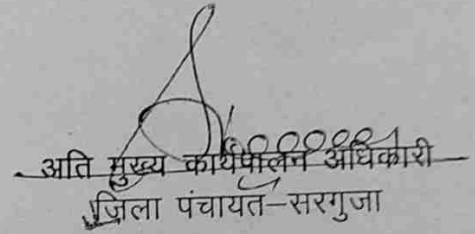 अति मुख्य कार्यपालन अधिकारी
जिला पंचायत-सरगुजा